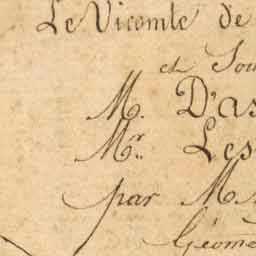 Le Vicomte de
et Sou
M. D'as
Mr. Les
par M.
Géomé